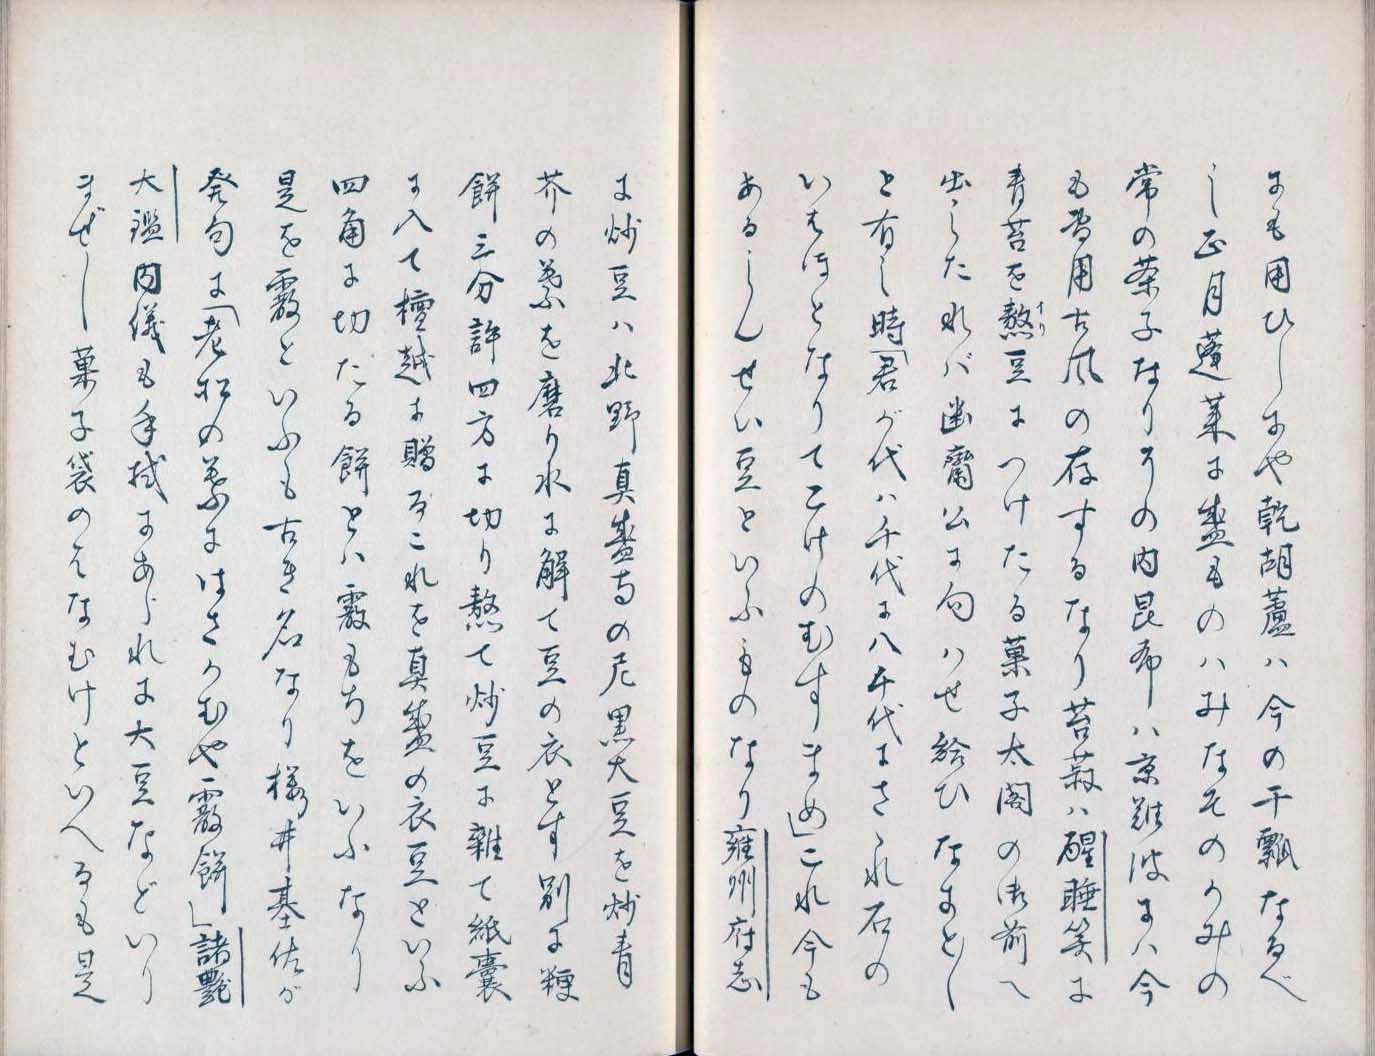 にも用ひしにや乾胡蘆ハ今の干瓢なるべ
し正月蓬莱に盛ものハみなそのかみの
常の菓子なりその内昆布ハ京難波にハ今
も専用古風の存するなり苔菽ハ醒睡笑に
青苔を熬豆につけたる菓子太閤の御前へ
すり
出したれバ幽齋公に句ハせ給ひなまとし
と有し時「君が代ハ千代に八千代にさゝれ石の
いはほとなりてこけのむすまめ」これ今も
あるしんせい豆といふものなり雍州府志
に炒豆ハ北野真盛寺の尼黒大豆を炒青
芥の葉を磨り水に解て豆の衣とす別に粳
餅三分許四方に切り熬て炒豆に雜て紙嚢
に入て檀越に贈るこれを真盛の衣豆といふ
四角に切たる餅とハ霰もちをいふなり
是を霰といふも古き名なり櫻井基佐が
発句に「老松の葉にはさかむや霰餅」諸艶
大鑑内儀も手拭にあられに大豆などいり
まぜし菓子袋のはなむけといへるも是